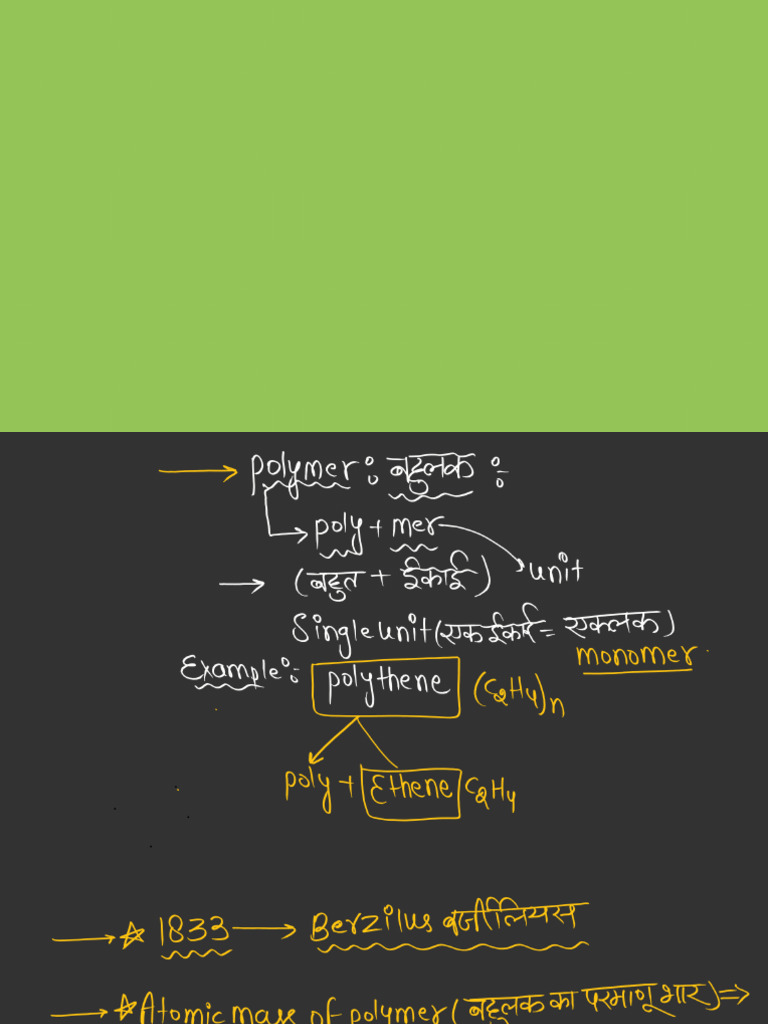 → polymer : बहुलक :-
→ poly + mer
→ (बहुत + ईकाई) unit
Single unit (एक ईकाई = एक्लक)
monomer
Example:- polythene (C2H4)n
poly + Ethene C2H4
→ ☆ 1833 → Berzilus बर्जीलियस
→ ☆ Atomic mass of polymer (बहुलक का परमाणू भार) =>